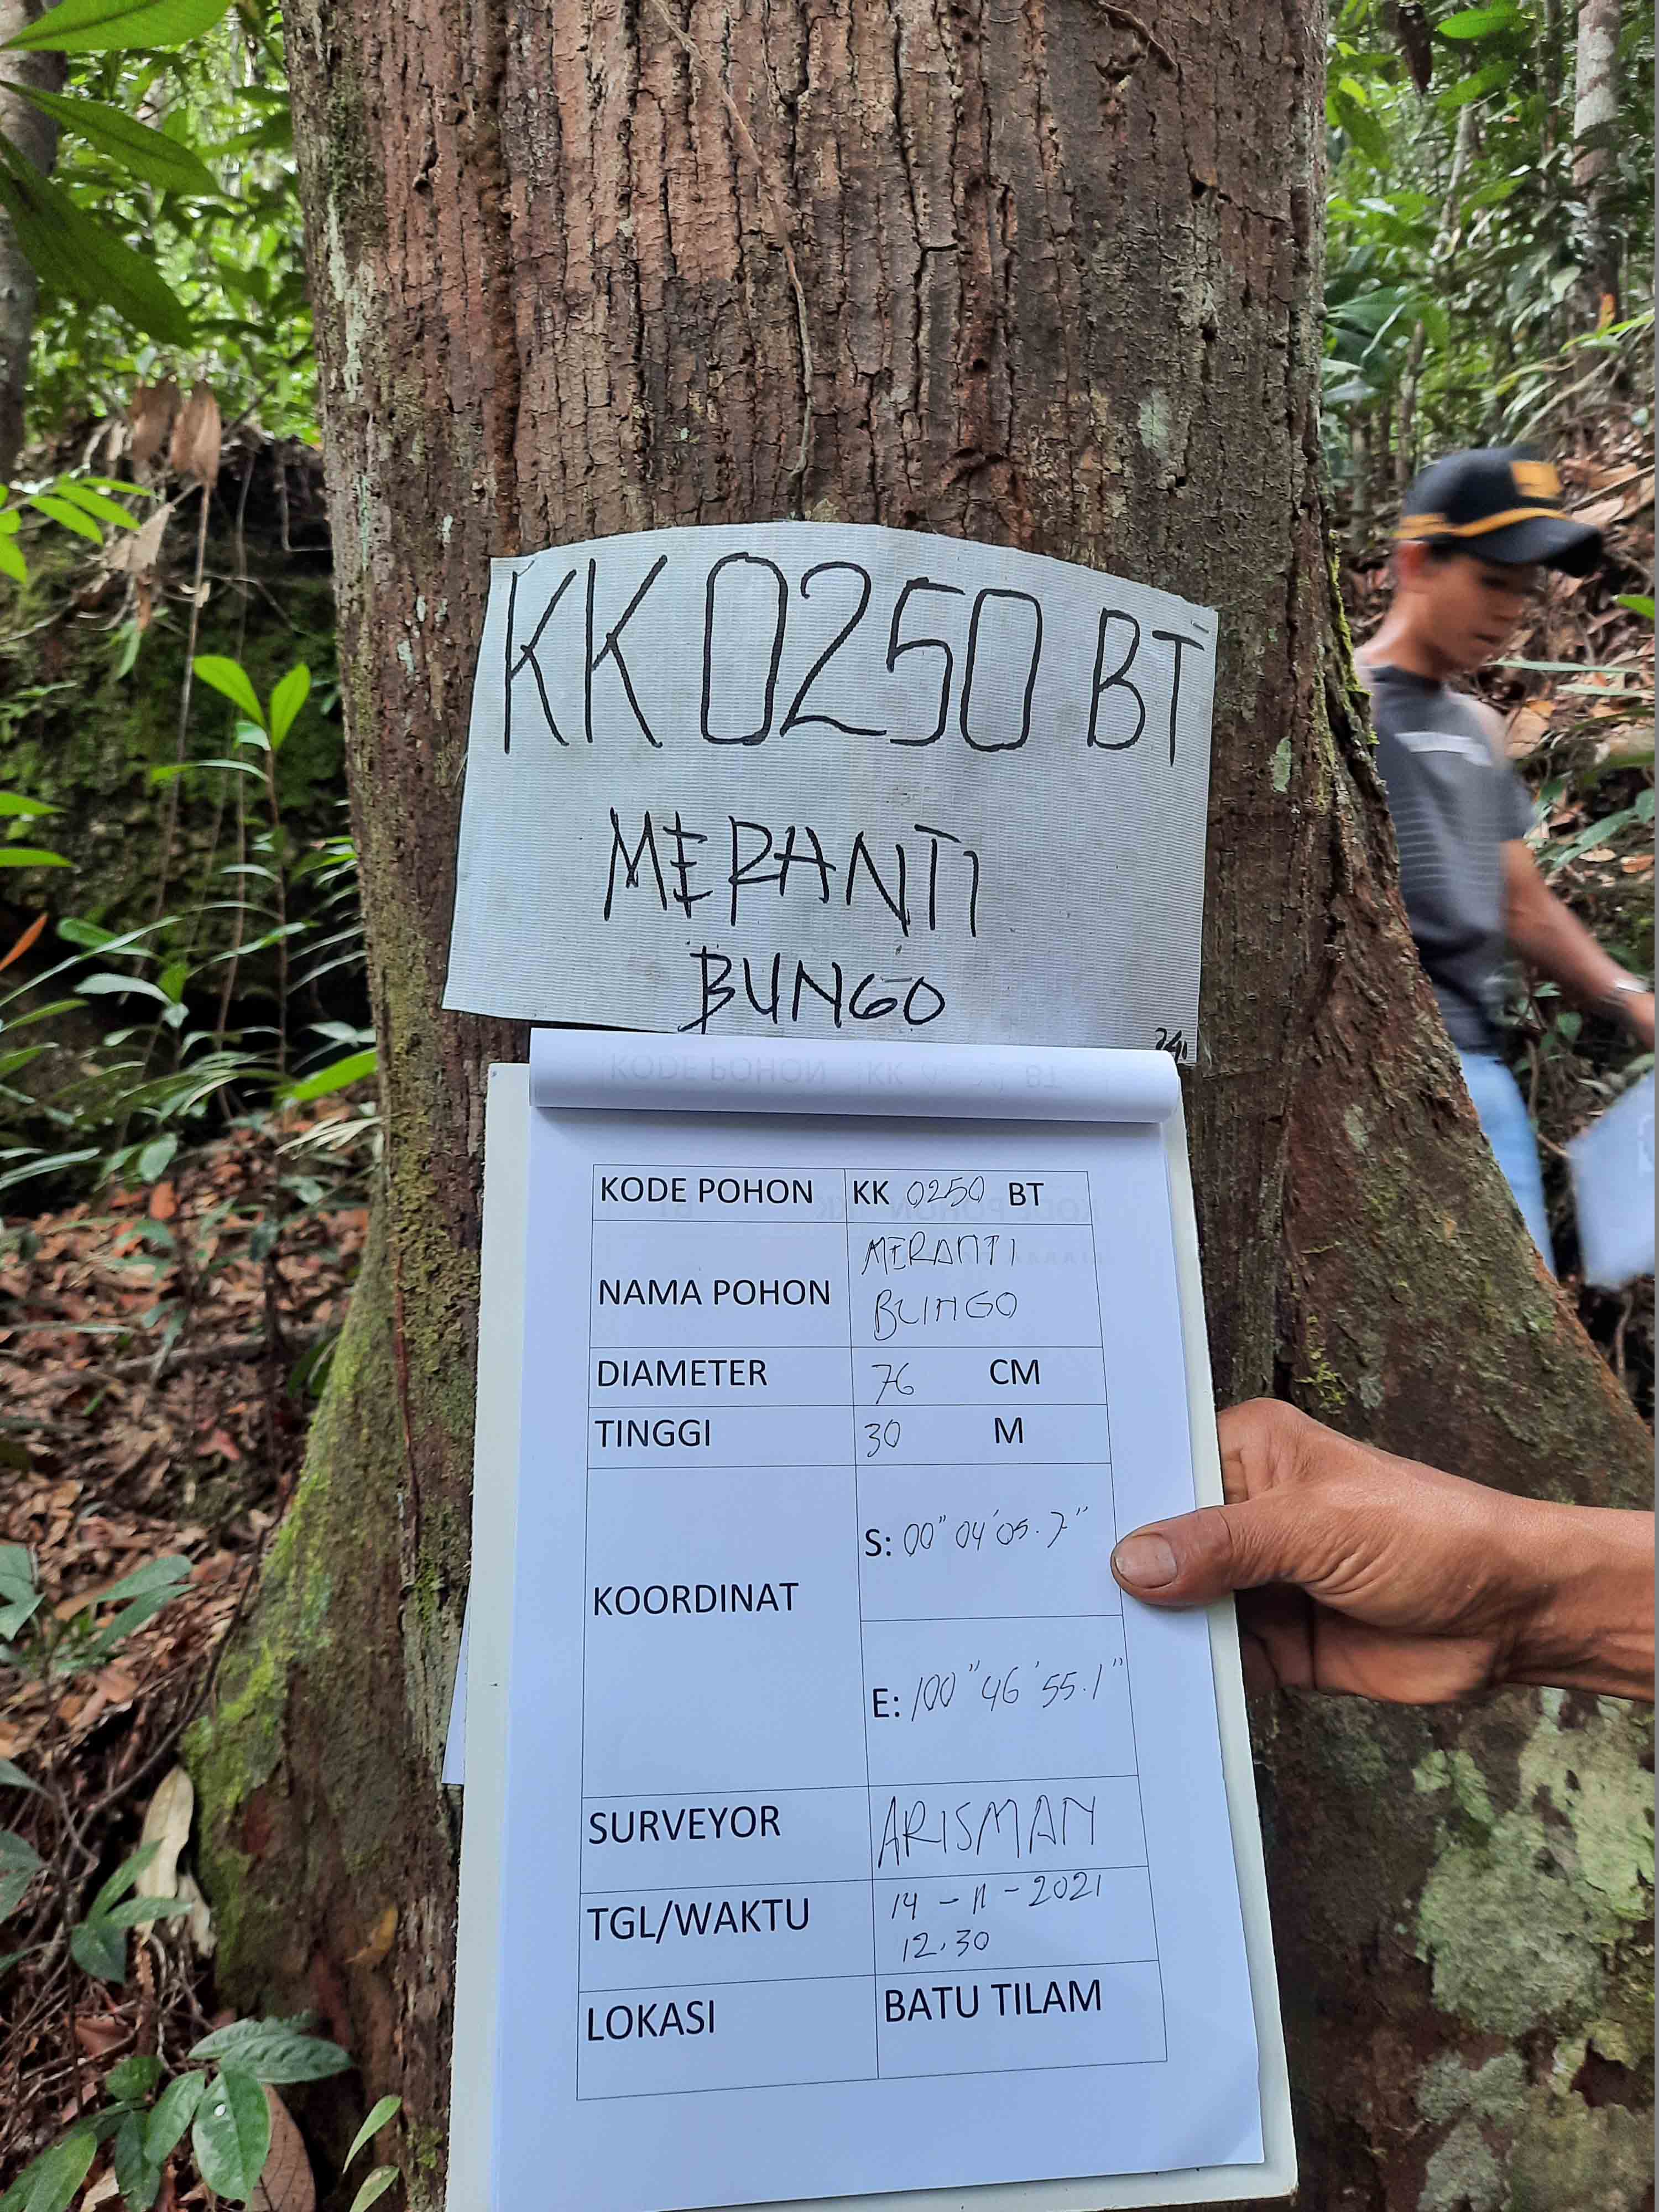 KK 0250 BT
MERANTI
BUNGO
KODE POHON KK 0250 BT
NAMA POHON MERANTI
BUNGO
DIAMETER 76 CM
TINGGI 30 M
KOORDINAT
S: 00" 04' 05.7"
E: 100" 46' 55.1"
SURVEYOR ARISMAN
TGL/WAKTU 14-11-2021
12.30
LOKASI BATU TILAM